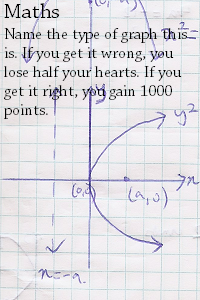 (0, a)
Maths
x² =
Name the type of graph this
is. If you get it wrong, you
lose half your hearts. If you
get it right, you gain 1000
points.
y
y²
x
(0,0)
(a,0)
x=-a.